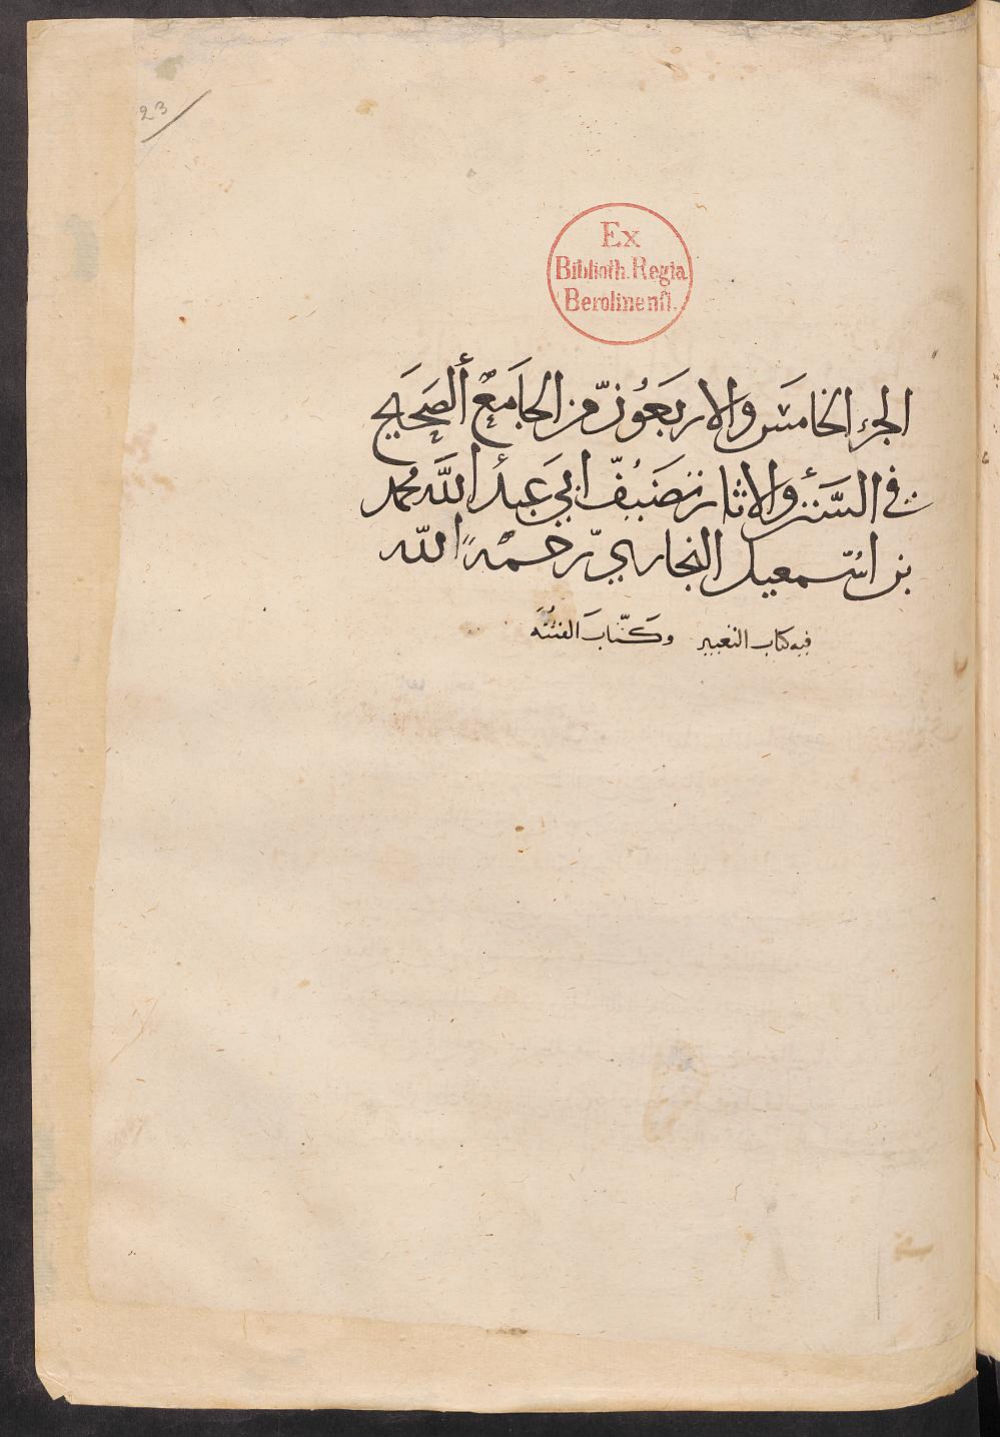 23
Ex
Biblioth. Regia
Berolinenſi.
الجزء الخامس والاربعون من الجامع الصحيح
في السنن والاثار تصنيف ابي عبد الله محمد
بن اسمعيل البخاري رحمه الله
فيه كتاب التعبير وكتاب الفتنه